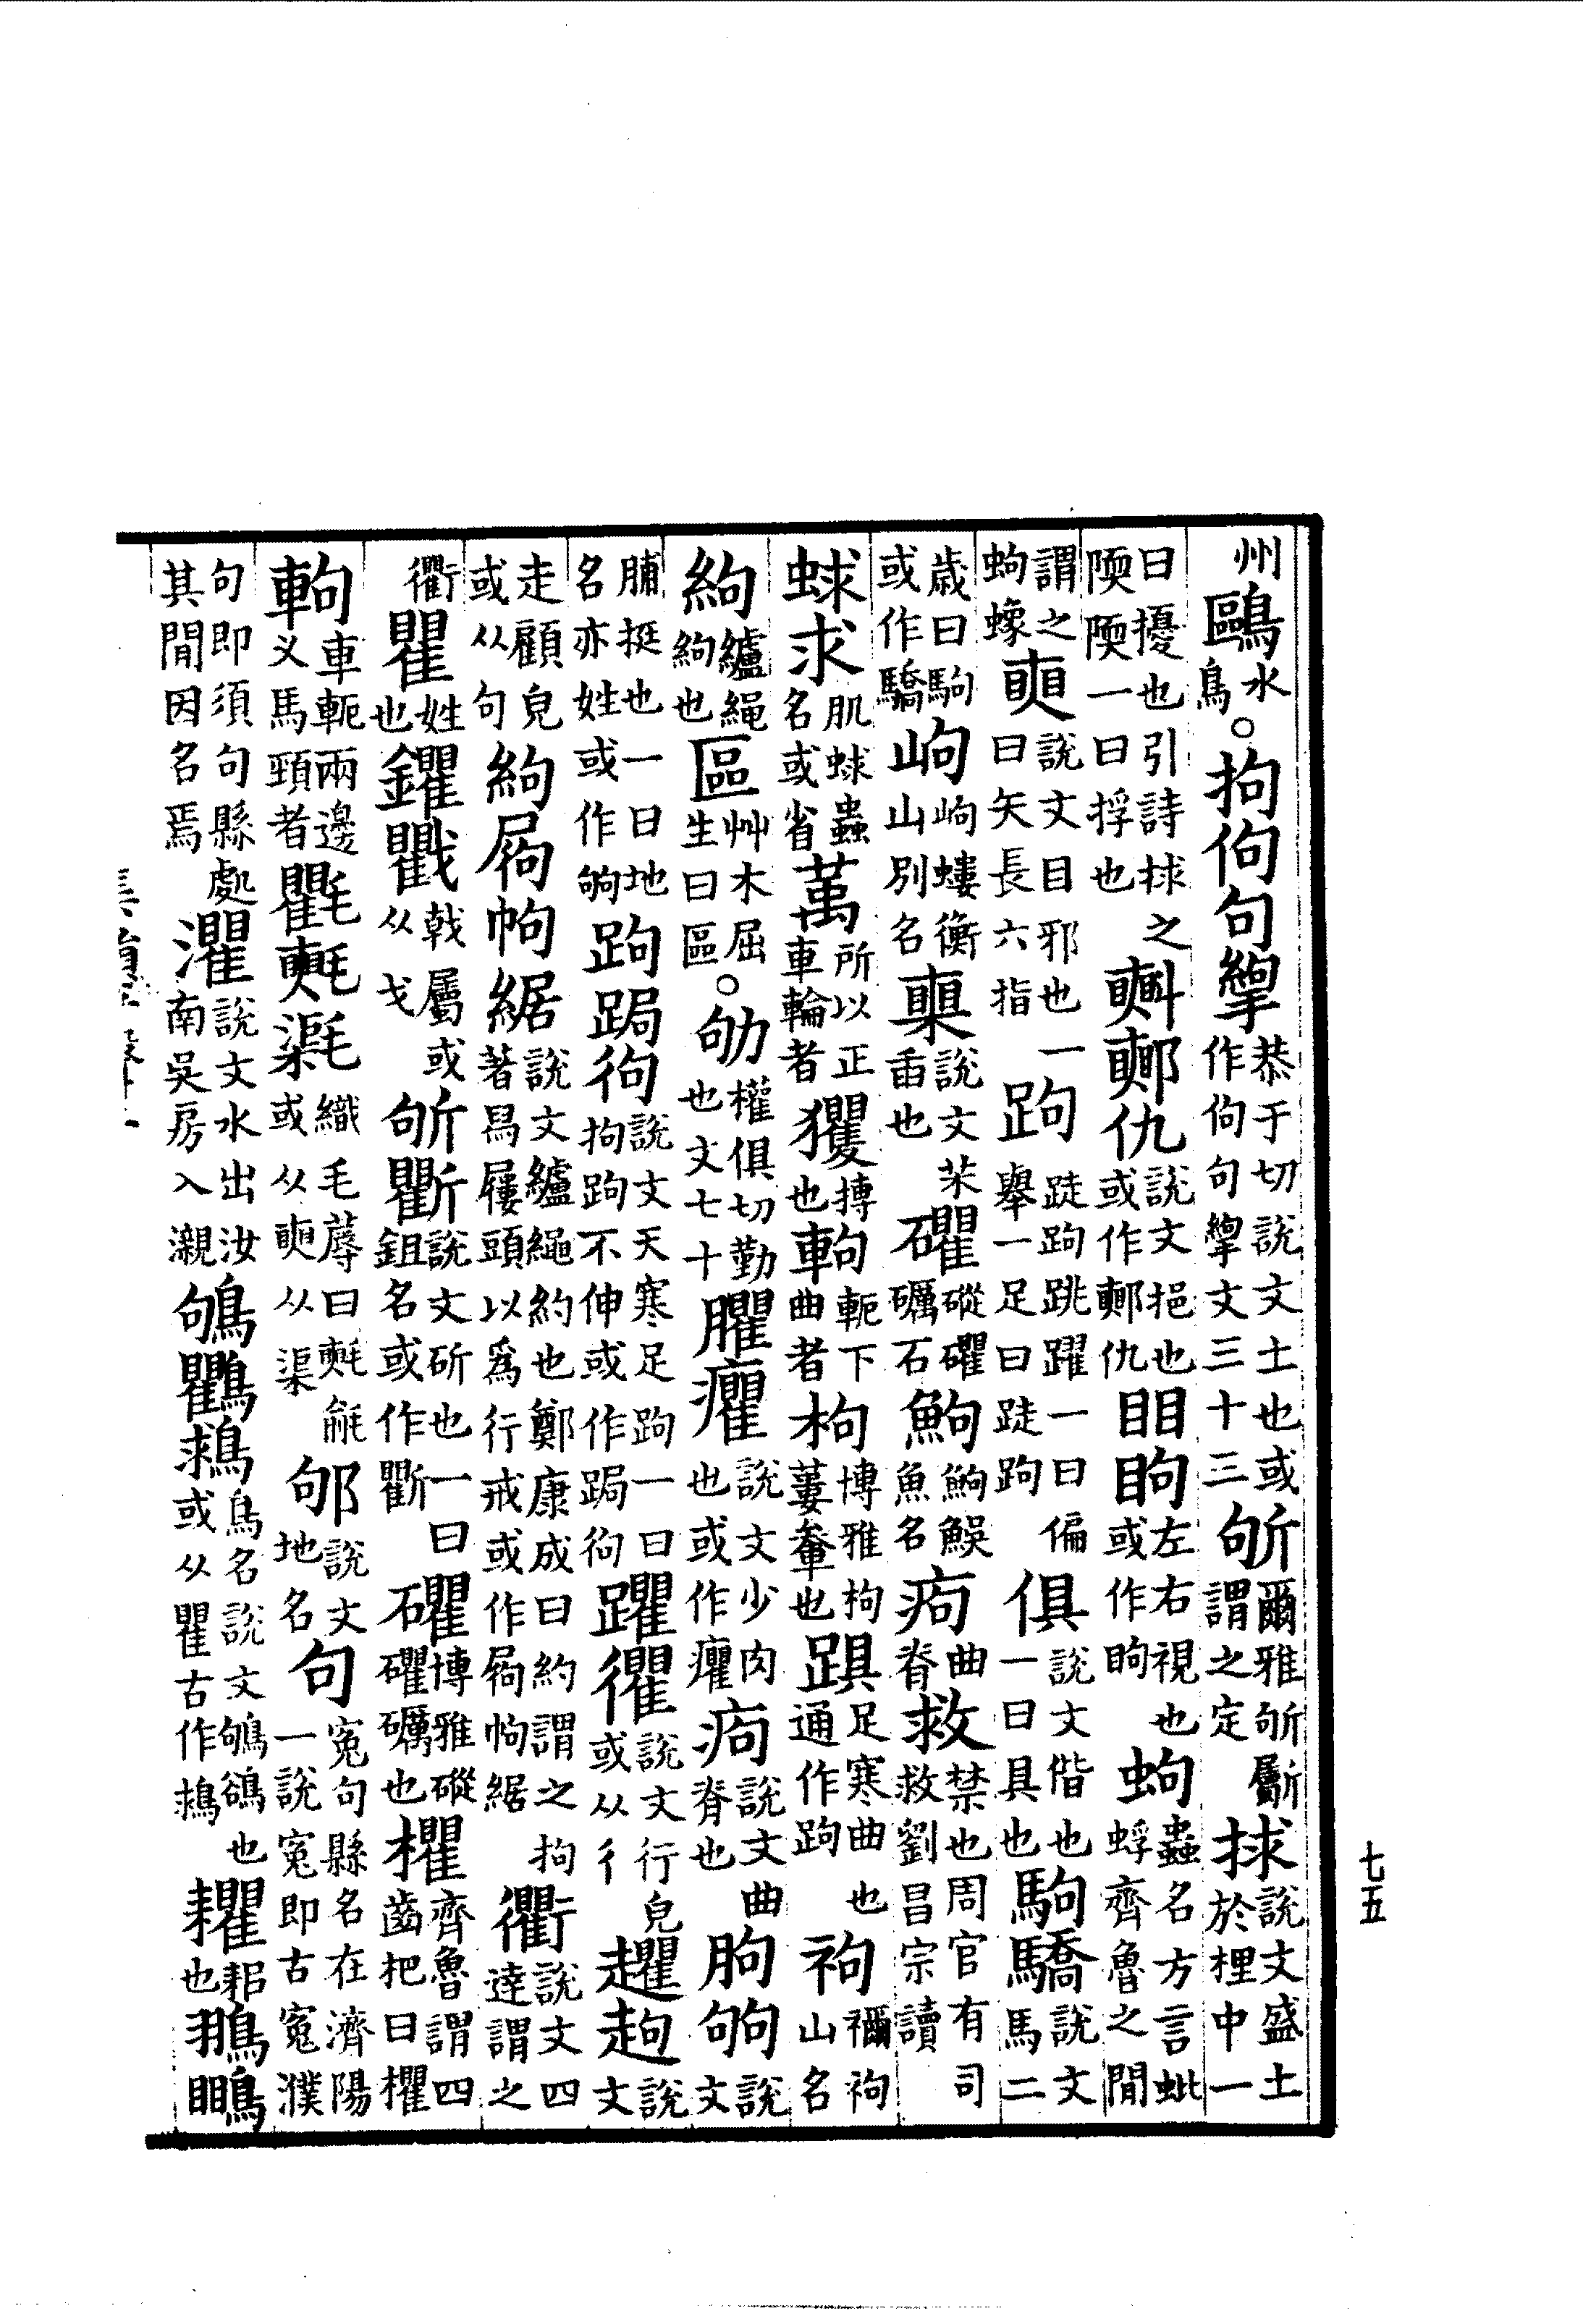 州鷗水鳥○拘佝句恭于切說文土也或作佝句文三十三斪爾雅斪斸謂之定捄說文盛土於梩中一
曰擾也引詩捄之陾陾一曰捊也仇說文挹也或作仇䀠眗左右視也或作眗蚼蟲名方言蚍蜉齊魯之間
謂之蚼蟓說文目邪也一曰矢長六指跔踕跔跳躍一曰偏舉一足曰踕跔俱說文偕也一曰具也駒驕說文馬二
歲曰駒或作驕岣岣嶁衡山別名說文茉臿也礭磫礭礪石鮈鮈鯸魚名痀曲脊救禁也周官有司救劉昌宗讀
蛷求肌蛷蟲名或省萭所以正車輪者玃搏也軥軛下曲者枸博雅枸蔞軬也踑足寒曲也通作跔袧襧袧山名
絇纑繩絇也區艸木屈生曰區○劬權俱切勤也文七十臞癯說文少肉也或作癯痀說文曲脊也朐說文
脯挺也一曰地名亦姓或作跔跼說文天寒足跔一曰拘跔不伸或作跼躍忂說文行皃或从彳趯赹說文
走顧皃或从句絇屨幁䋧說文纑繩約也鄭康成曰約謂之拘著舄屨頭以爲行戒或作衢說文四達謂之
衢瞿姓也鑺戵戟屬或从戈斪斸說文斫也一曰鉏名或作礭博雅磫礭礪也欋齊魯謂四齒杷曰欋
軥車軛兩邊叉馬頸者氍織毛蓐曰或从从渠䣱說文地名句冤句縣名在濟陽一說冤即古冤濮
句即須句縣處其間因名焉灈說文水出汝南吳房入瀙鴝鸜鳥名說文鴝鵒也或从瞿古作也
七五